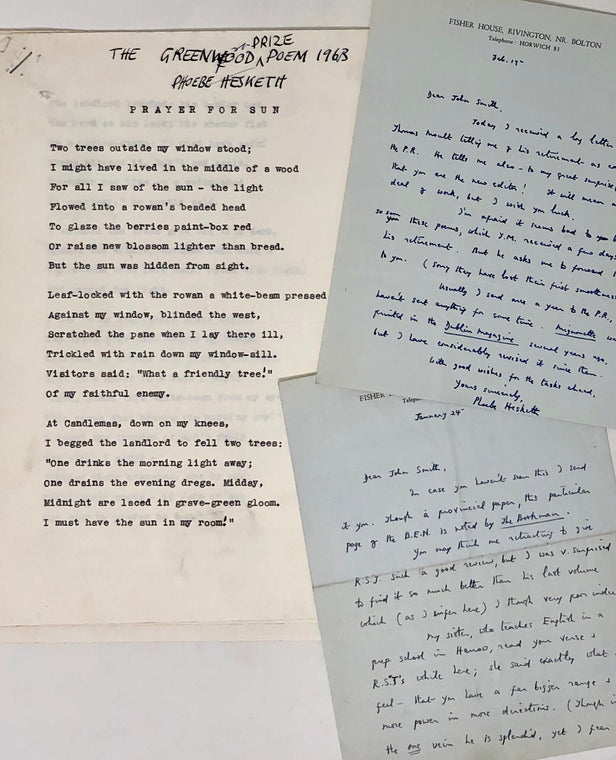 THE GREENWOOD PRIZE POEM 1963
PHOEBE HESKETH
PRAYER FOR SUN
Two trees outside my window stood;
I might have lived in the middle of a wood
For all I saw of the sun - the light
Flowed into a rowan's beaded head
To glaze the berries paint-box red
Or raise new blossom lighter than bread.
But the sun was hidden from sight.
Leaf-locked with the rowan a white-beam pressed
Against my window, blinded the west,
Scratched the pane when I lay there ill,
Trickled with rain down my window-sill.
Visitors said: "What a friendly tree!"
Of my faithful enemy.
At Candlemas, down on my knees,
I begged the landlord to fell two trees:
"One drinks the morning light away;
One drains the evening dregs. Midday,
Midnight are laced in grave-green gloom.
I must have the sun in my room!"
FISHER HOUSE, RIVINGTON, NR. BOLTON
Telephone: HORWICH 81
Feb. 15
Dear John Smith,
Today I received a long letter
Thomas Moult telling me of his retirement as
the P.R. He tells me also - to my great surprise
that you are the new editor! It will mean a
deal of work, but I wish you luck.
I'm afraid it seems hard to you
these poems, which T.M. received a few days
his retirement. But he asks me to forward
to you. (Sorry they have lost their first smoothness
Usually I send once a year to the P.R.,
haven't sent anything for some time. Mignonette
printed in the Dublin Magazine several years ago
but I have considerably revised it since then.
With good wishes for the tasks ahead,
Yours sincerely,
Phoebe Hesketh
FISHER
January 24
Dear John Smith,
In case you haven't seen this I send
it you. Though a provincial paper, this particular
page of the B.E.N. is noted by The Bookman.
You may think me retracting to give
R.S.T. such a good review, but I was v. surprised
to find it so much better than his last volume
which (as I infer here) I thought very poor indeed
My sister, who teaches English in a
prep school in Harrow, read your verse &
R.S.T's while here; she said exactly what I
feel - that you have a far bigger range &
more power in more directions. (Though in
the one vein he is splendid, yet I fear